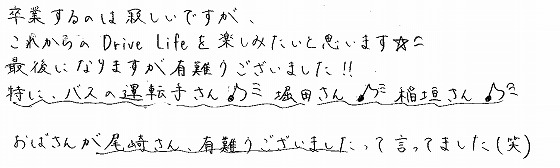 卒業するのは寂しいですが、
これからの Drive Life を楽しみたいと思います☆ミ
最後になりますが有難うございました!!
特に、バスの運転手さん♪ミ 堀田さん♪ミ 稲垣さん♪ミ
おばさんが尾崎さん、有難うございましたって言ってました(笑)